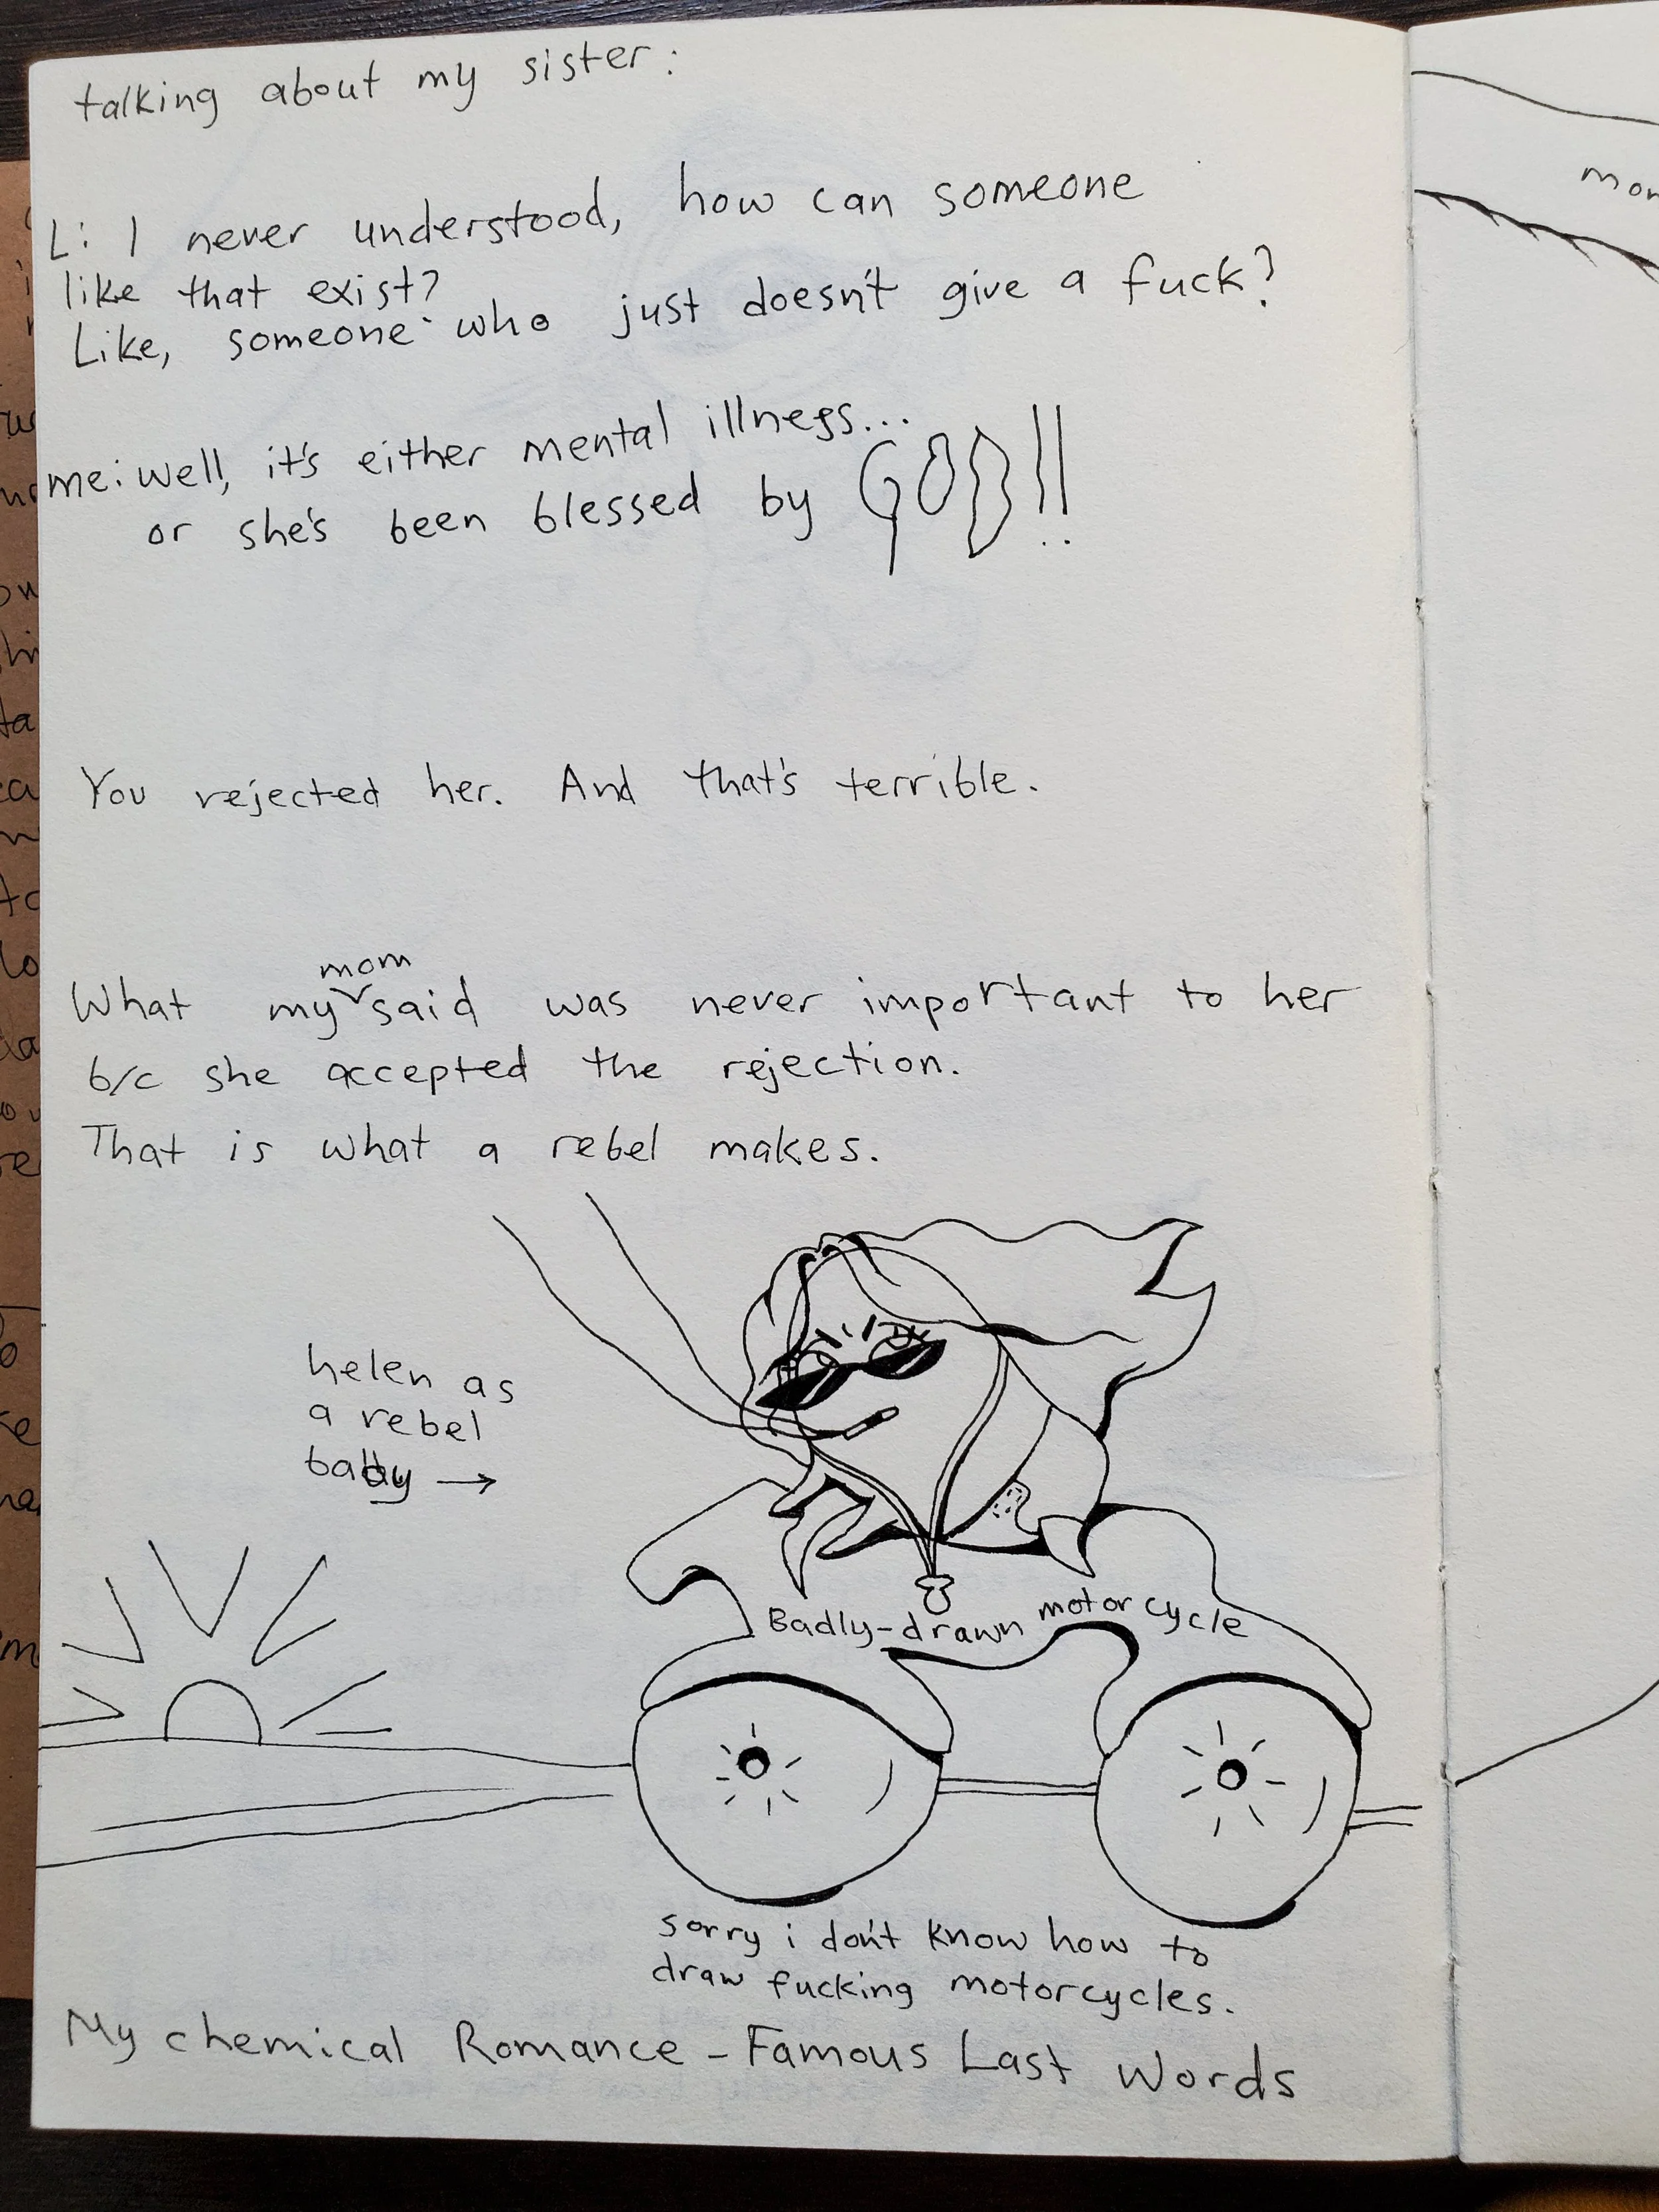 talking about my sister:
L: I never understood, how can someone
like that exist?
Like, someone who just doesn't give a fuck?
me: well, it's either mental illness...
or she's been blessed by GOD!!
You rejected her. And that's terrible.
What my mom said was never important to her
b/c she accepted the rejection.
That is what a rebel makes.
helen as
a rebel
→
Badly-drawn motorcycle
sorry i don't know how to
draw fucking motorcycles.
My chemical Romance - Famous Last Words
mon